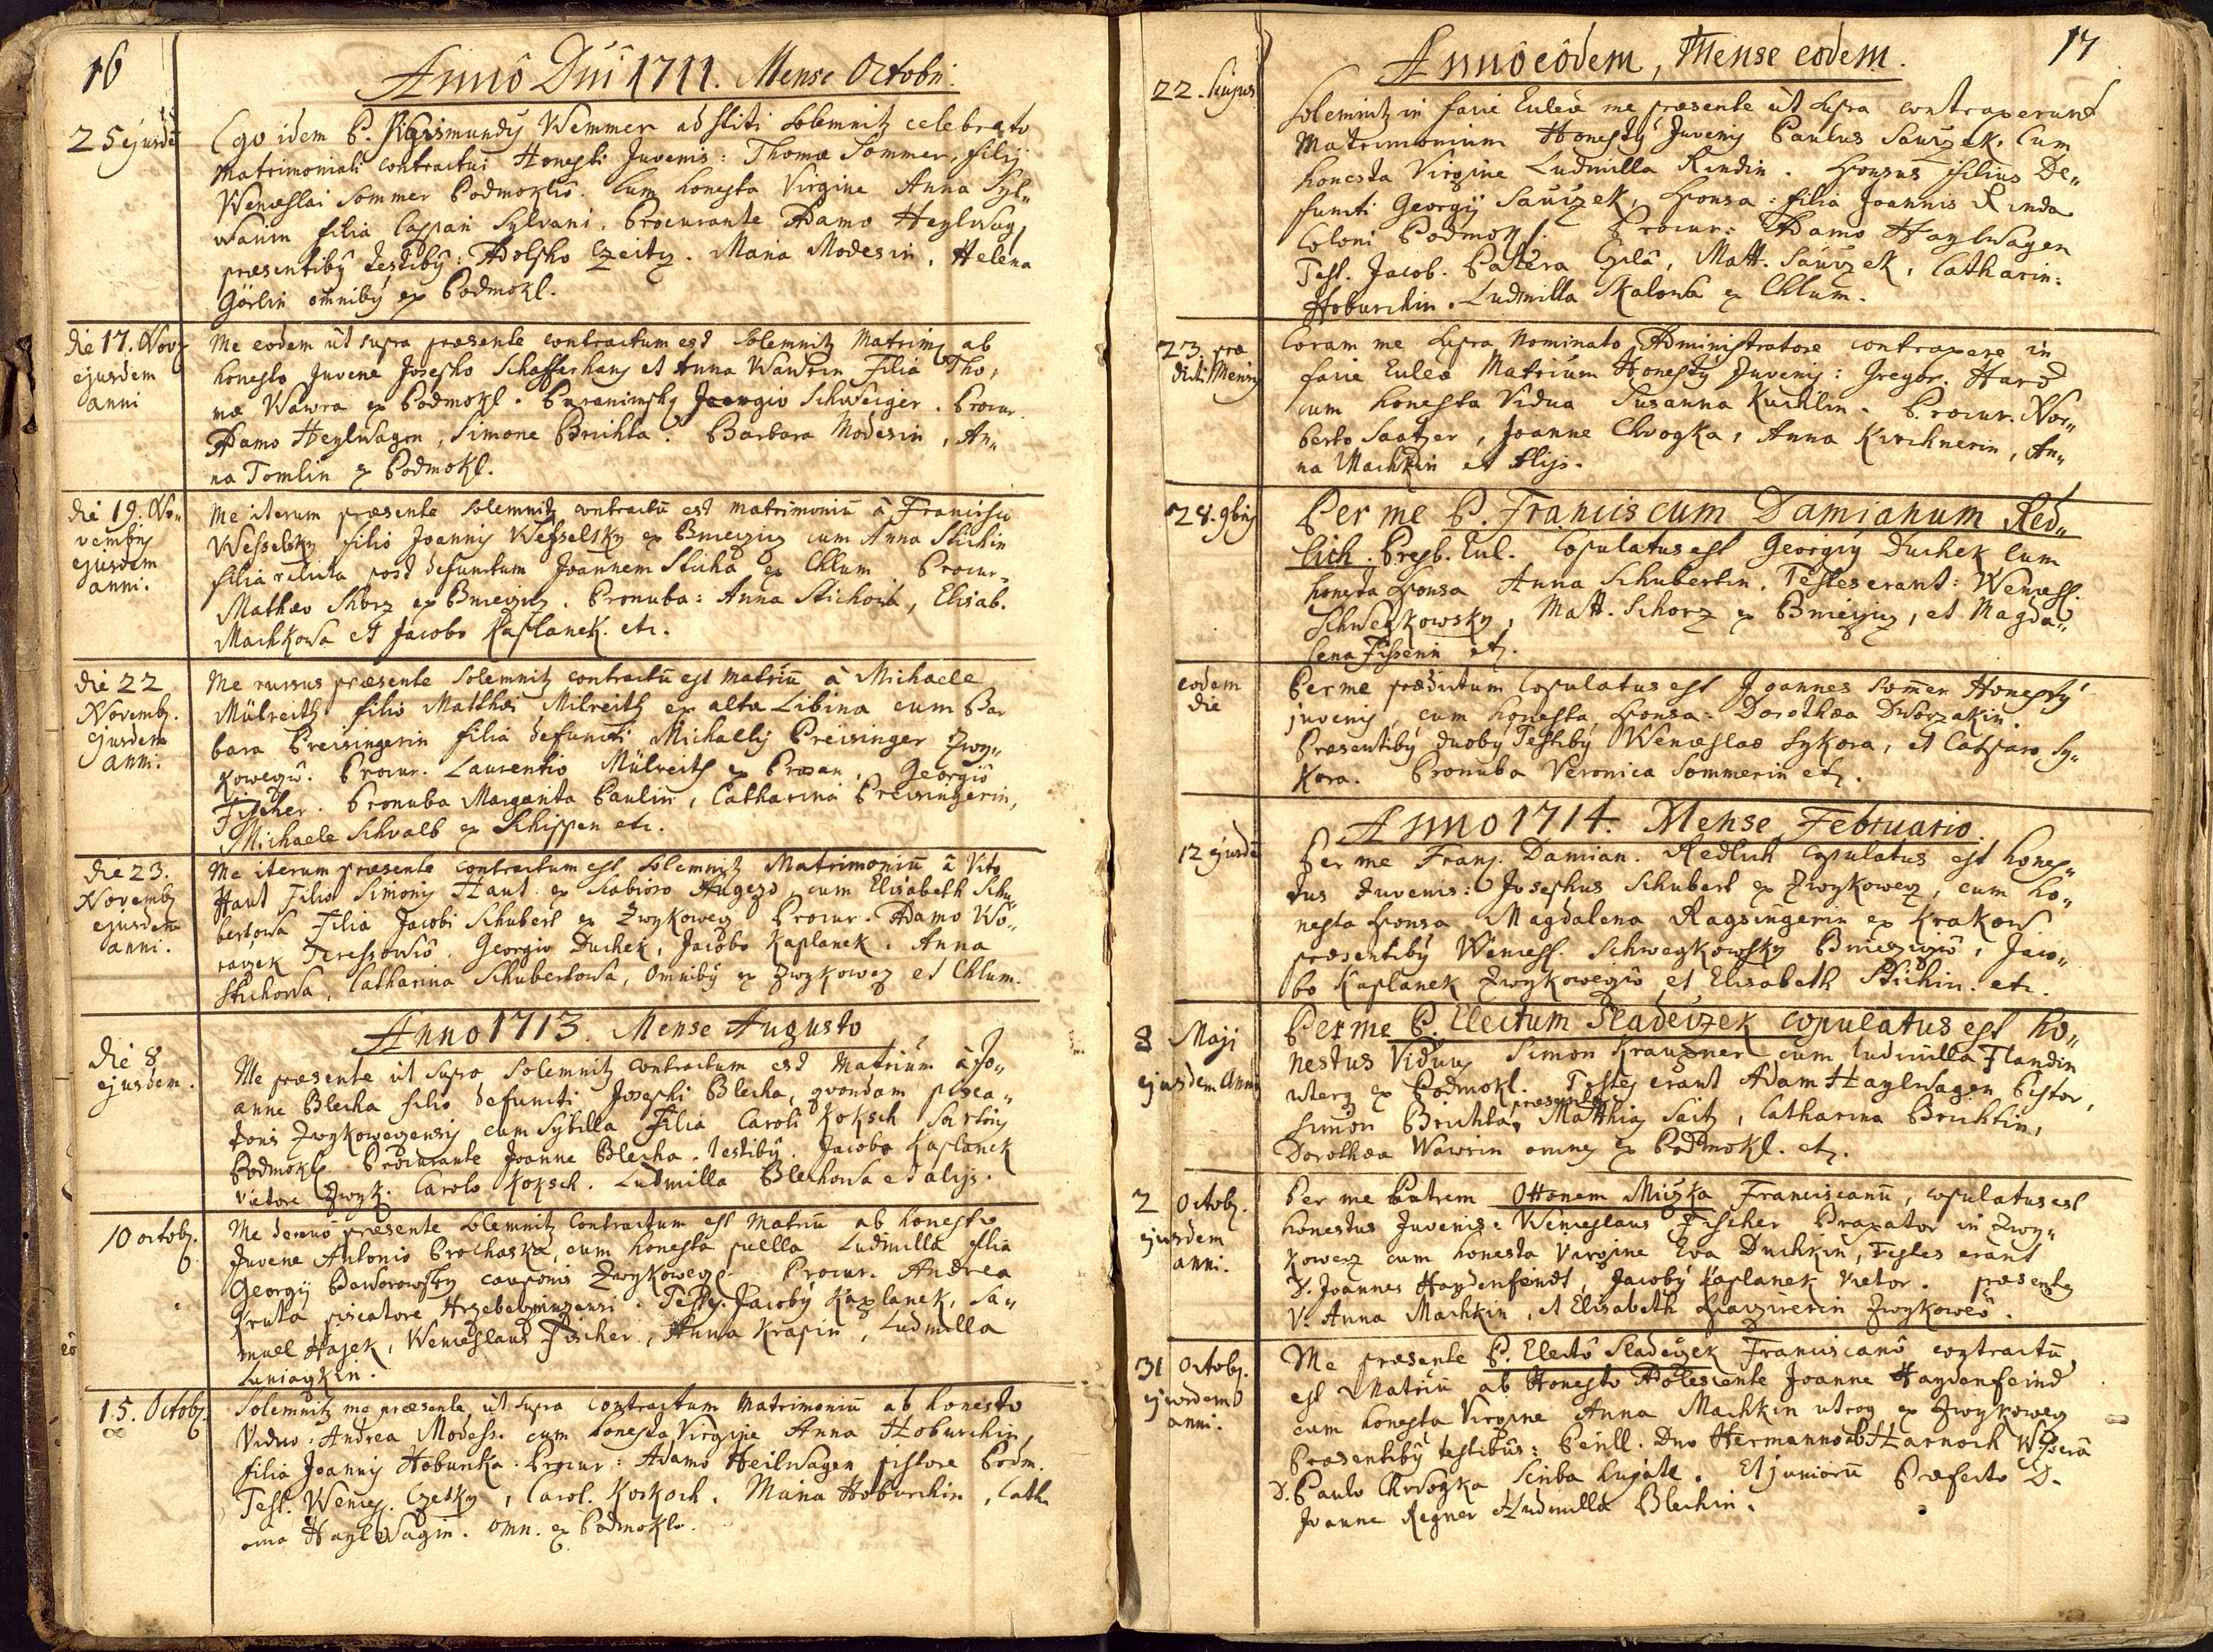 16
Anno Dni 1711. Mense Octobri.
25 ejusdē
Ego idem P. Sigismundy Wemmer adstiti solemnit celebrato
Matrimoniali contractui Honesti Juvenis: Thomæ Sommer, filij
Wenceslai Sommer Podmoklio. cum honesta Virgine Anna Syl„
wanin filia Caspari Sylvani. Procurante Adamo Heylwag,
præsentiby testiby: Adolpho Czeitz. Maria Modesin, Helena
Görlin omniby ex Podmokl.
die 17. Novz
ejusdem
anni
Me eodem ut supra præsente contractum est solemnit Matrimz ab
honesto Juvene Josepho Schafferhans et Anna Wawrin Filia Tho„
mæ Wawra ex Podmokl. Georgio Schweiger. Procur.
Adamo Heylwagen, Simone Brichta. Barbara Modesin, An„
na Tomlin ex Podmokl.
die 19. No„
vembris
ejusdem
anni.
Me iterum præsente solemnit contractū est matrimoniū à Francisco
Wesselsky filio Joannis Wesselsky ex Bmieczicz cum Anna Stichin
filia relicta post defunctum Joannem Sticha ex Chlum Procur.
Mathæo Skorz ex Bmieczicz. Pronuba: Anna Stichowa, Elisab.
Machkowa et Jacobo Kaplanek. etc.
die 22
Novembz.
ejusdem
anni.
Me rursus præsente solemnit contractū est matriū à Michaele
Mülreith filio Matthæi Milreith ex alta Libina cum Bar
bara Preisingerin filia defuncti Michaelis Preisinger Zwy„
kowecio. Procur. Laurentio Mülreith ex Prosan, Georgio
Fischer. Pronuba Margarita Paulin, Catharina Preisingerin,
Michaele Schwalb ex Schippen etc.
die 23.
Novembz
ejusdem
anni.
Me iterum præsente contractum est solemnit Matrimoniū à Vito
Haut Filio Simonis Haut ex Augezd, cum Elisabeth Schu„
bertowa Filia Jacobi Schubert ex Zwykowecz Procur. Adamo Wo„
raczek Tereschowio. Georgio Duchek, Jacobo Kaplanek. Anna
Stichowa, Catharina Schubertowa, omniby ex Zwykowecz et Chlum.
Anno 1713. Mense Augusto
die 8
ejusdem.
Me præsente ut supra solemnit contractum est Matrium à Jo„
anne Blecha filio defuncti Josephi Blecha, quondam pisca„
toris Zwykowecensis cum Sybilla Filia Caroli Koksch Sartoris
Podmokl. Procurante Joanne Blecha. testiby. Jacobo Kaplanek
Vietore Zwyk. Carolo Koksch. Ludmilla Blechowa et alijs.
10 octobz.
Me denuo præsente solemnit contractum est Matriū ab honesto
Juvene Antonio Prochaska, cum honesta puella Ludmilla filia
Georgij Bawborowsky cauponis Zwykowecz. Procur. Andrea
Kruta piscatore. Testes. Jacoby Kaplanek, Sa„
muel Hajek, Wenceslaus Fischer, Anna Krapin, Ludmilla
Luniaczkin.
15. Octobz.
Solemnit me præsente ut supra contractum Matrimoniū ab honesto
Viduo Andrea Modess. cum honesta Virgine Anna Hoburchin,
filia Joannis Hoburka. Procur: Adamo Heilwagen pistore Podm.
Test. Wences. Czesky, Carol. Kokoch. Maria Hoburchin, Cath„
arina Haylwagin. omn. ex Podmokl.
17
Anno eodem, Mense eodem.
22. hujus
solemnit in facie Eccleæ me præsente ut supra contraxerunt
Matrimonium Honesty Juvenis Paulus Saurzek. Cum
honesta Virgine Ludmilla Rindin. Sponsus filius De„
functi Georgij Saurzek, Sponsa: filia Joannis Rinda
Coloni Podmokl. Procur: Adamo Haylwagen
Test. Jacob. Patera, Matt. Saurzek, Catharin:
Hoburchin. Ludmilla Skalowa ex Chlum.
23. præ
dicti Mensis
Coram me supra Nominato Administratore contraxere in
facie Eccleæ Matrium Honesty Juvenis: Gregor. Hard
cum honesta Vidua Susanna Kuchlin. Procur. Nor„
berto Saatzer, Joanne Chvogka, Anna Kirchnerin, An„
na Machkin et alijs.
28. 9bris
Per me P. Franciscum Damianum Red„
lich. Presb. Eccl. Copulatus est Georgiy Duchek cum
honesta sponsa Anna Schubertin. Testes erant: Wencesl.
Schweykowsky, Matt. Schorz ex Bmieczicz, et Magda„
lena Fisserin etz.
eodem
die
Per me prædictum Copulatus est Joannes Som̄er Honesty
juvenis, cum honesta sponsa: Dorothæa Dworzakin.
Præsentiby duoby Testiby Wenceslao Sykora, et Casparo Sy„
kora. Pronuba Veronica Sommerin etz.
Anno 1714. Mense Februario.
12 ejusdē
Per me Franz. Damian. Redlich copulatus est hones„
tus Juvenis: Josephus Schubert ex Zwykowecz, cum ho„
nesta sponsa Magdalena Ragsingerin ex Krakow
præsentiby Wencesl. Schweykowsky Bmieczicio, Jaco„
bo Kaplanek Zwykowecio et Elisabeth Stichin. etc.
8 Maji
ejusdem Anni
Per me P. Electum Sladeczek copulatus est Ho„
nestus Viduus Simon Krauzner cum Ludmilla Flandin
uterq ex Podmokl. Testes erant Adam Haylwagen Pistor,
Simon Brichta, præsente Matthias Saitz, Catharina Brichtin,
Dorothæa Wawrin omnes ex Podmokl. etz.
2 Octobz.
ejusdem
anni.
Per me Patrem Ottonem Miczka Franciscanū, copulatus est
honestus Juvenis: Wenceslaus Fischer Braxator in Zwy„
kowecz cum honesta Virgine Eva Duchkin, Testes erant
D. Joannes Haydenfeindt, Jacoby Kaplanek Vietor. præsente
V. Anna Machkin, et Elisabeth Zwykoweō.
31 Octobz.
ejusdem
anni.
Me præsente P. Electo Sladeczek Franciscano contractū
est Matriū ab Honesto Adolescente Joanne Haydenfeind
cum honesta Virgine Anna Machkin utrog ex Zwykowecz
Præsentiby testibus: Perill. Dno Hermanno ab Harnoch
D. Paulo Chvogka Scriba hujate. Et juniorū Præfecto D.
Joanne Regner Ludmilla Blechin.